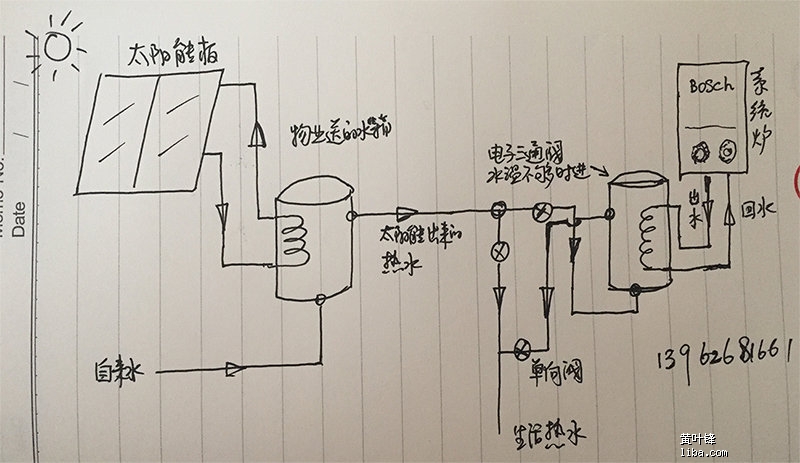 太阳能板
物业送的水箱
电子三通阀
水温不够时进
BOSCH
系统炉
出水
回水
太阳能出来的
热水
自来水
单向阀
生活热水
13962681661
Date
黄叶锋
liba.com